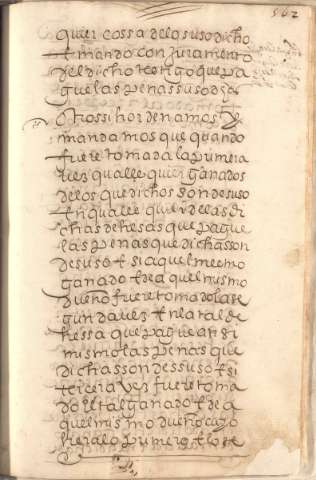 562
quier cossa de lo suso dicho
tomando con juramento
del dicho testigo que pa
gue las penas suso dichas
Otrossi hordenamos y
mandamos que quando
fuere tomada la primera
vez qualesquier ganados
delos que dichos son de suso
En qualesquier delas di
chas dehesas que pague
las penas que dichas son
desuso E si aquel mesmo
ganado E de aquel mismo
dueño fuere tomado la se
gunda vez En la tal de
hessa que pague ansi
mismo las penas que
dichas son de ssuso E si
tercera vez fuere toma
do El tal ganado E de a
quel mismo dueño
primero E